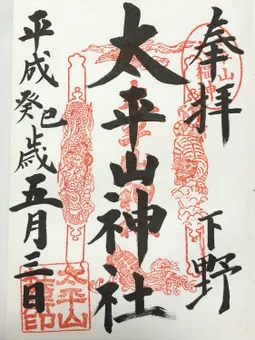 奉拝 下野
太平山神社
平成癸巳歳五月三日
太平山
神社印